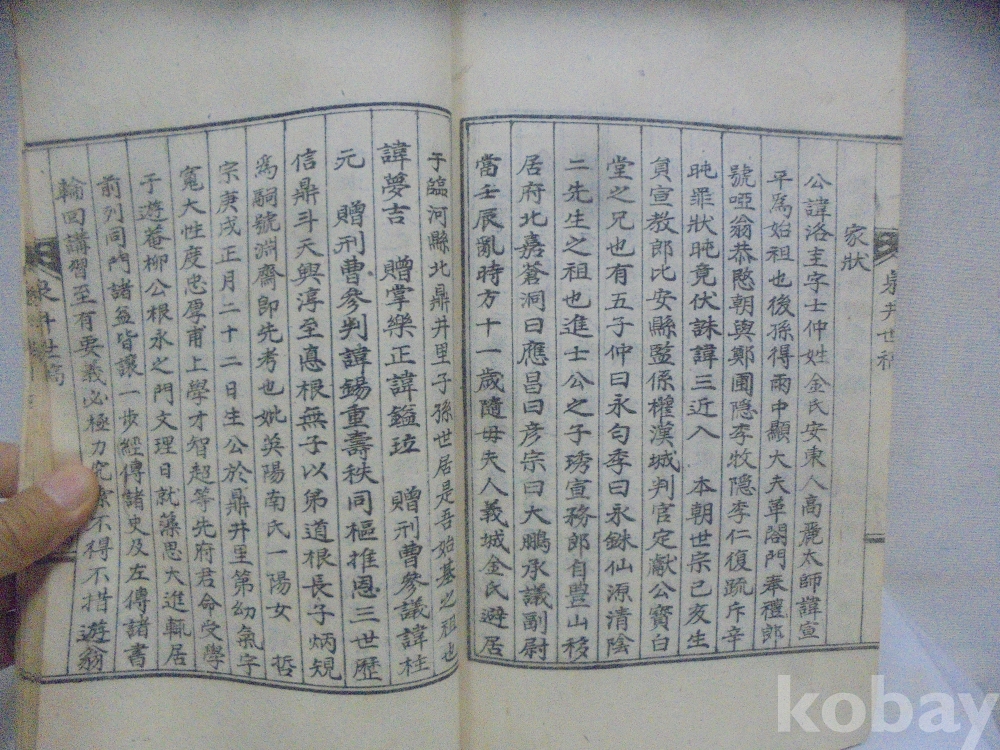 家狀
公諱洛圭字士仲姓金氏安東人高麗太師諱宣
平爲始祖也後孫得雨中顯大夫革閣門奉禮郎
號啞翁恭愍朝與鄭圃隱李牧隱李仁復疏斥辛
旽罪狀旽竟伏誅諱三近入 本朝世宗己亥生
員宣教郎比安縣監係櫂漢城判官定獻公寶白
堂之兄也有五子仲曰永勻季曰永銖仙源清陰
二先生之祖也進士公之子琇宣務郎自豊山移
居府北嘉蒼洞曰應昌曰彦宗曰大鵬承議副尉
當壬辰亂時方十一歲隨母夫人義城金氏避居
于臨河縣北鼎井里子孫世居是吾始基之祖也
諱夢吉 贈掌樂正諱鎰竝 贈刑曹參議諱柱
元 贈刑曹參判諱錫重壽秩同樞推恩三世歷
信鼎斗天興淳至悳根無子以弟道根長子炳規
爲嗣號淵齋卽先考也妣英陽南氏一陽女 哲
宗庚戌正月二十二日生公於鼎井里第幼氣宇
寬大性度忠厚甫上學才智超等先府君命受學
于遊菴柳公根永之門文理日就藻思大進輒居
前列同門諸益皆讓一步經傳諸史及左傳諸書
輪回講習至有要義必極力究索不得不措遊翁
井世稿
kobay